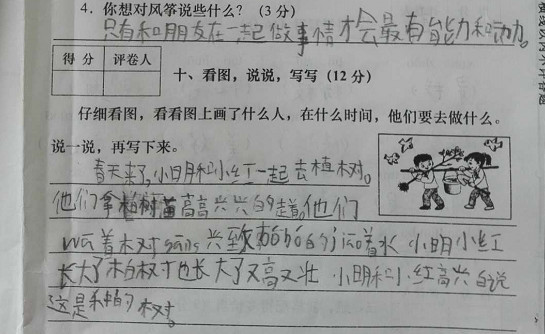 4. 你想对风筝说些什么？（3分）
只有和朋友在一起做事情才会最有能力和动力。
得分 评卷人
十、看图，说说，写写（12分）
仔细看图，看看图上画了什么人，在什么时间，他们要去做什么。
说一说，再写下来。
春天来了，小明和小红一起去植树。
他们拿着树苗高高兴兴的走着。他们
着树 兴致勃勃的 着水 小明小红
长大了 树也长大了又高又壮 小明和小红高兴的说
这是我的树。